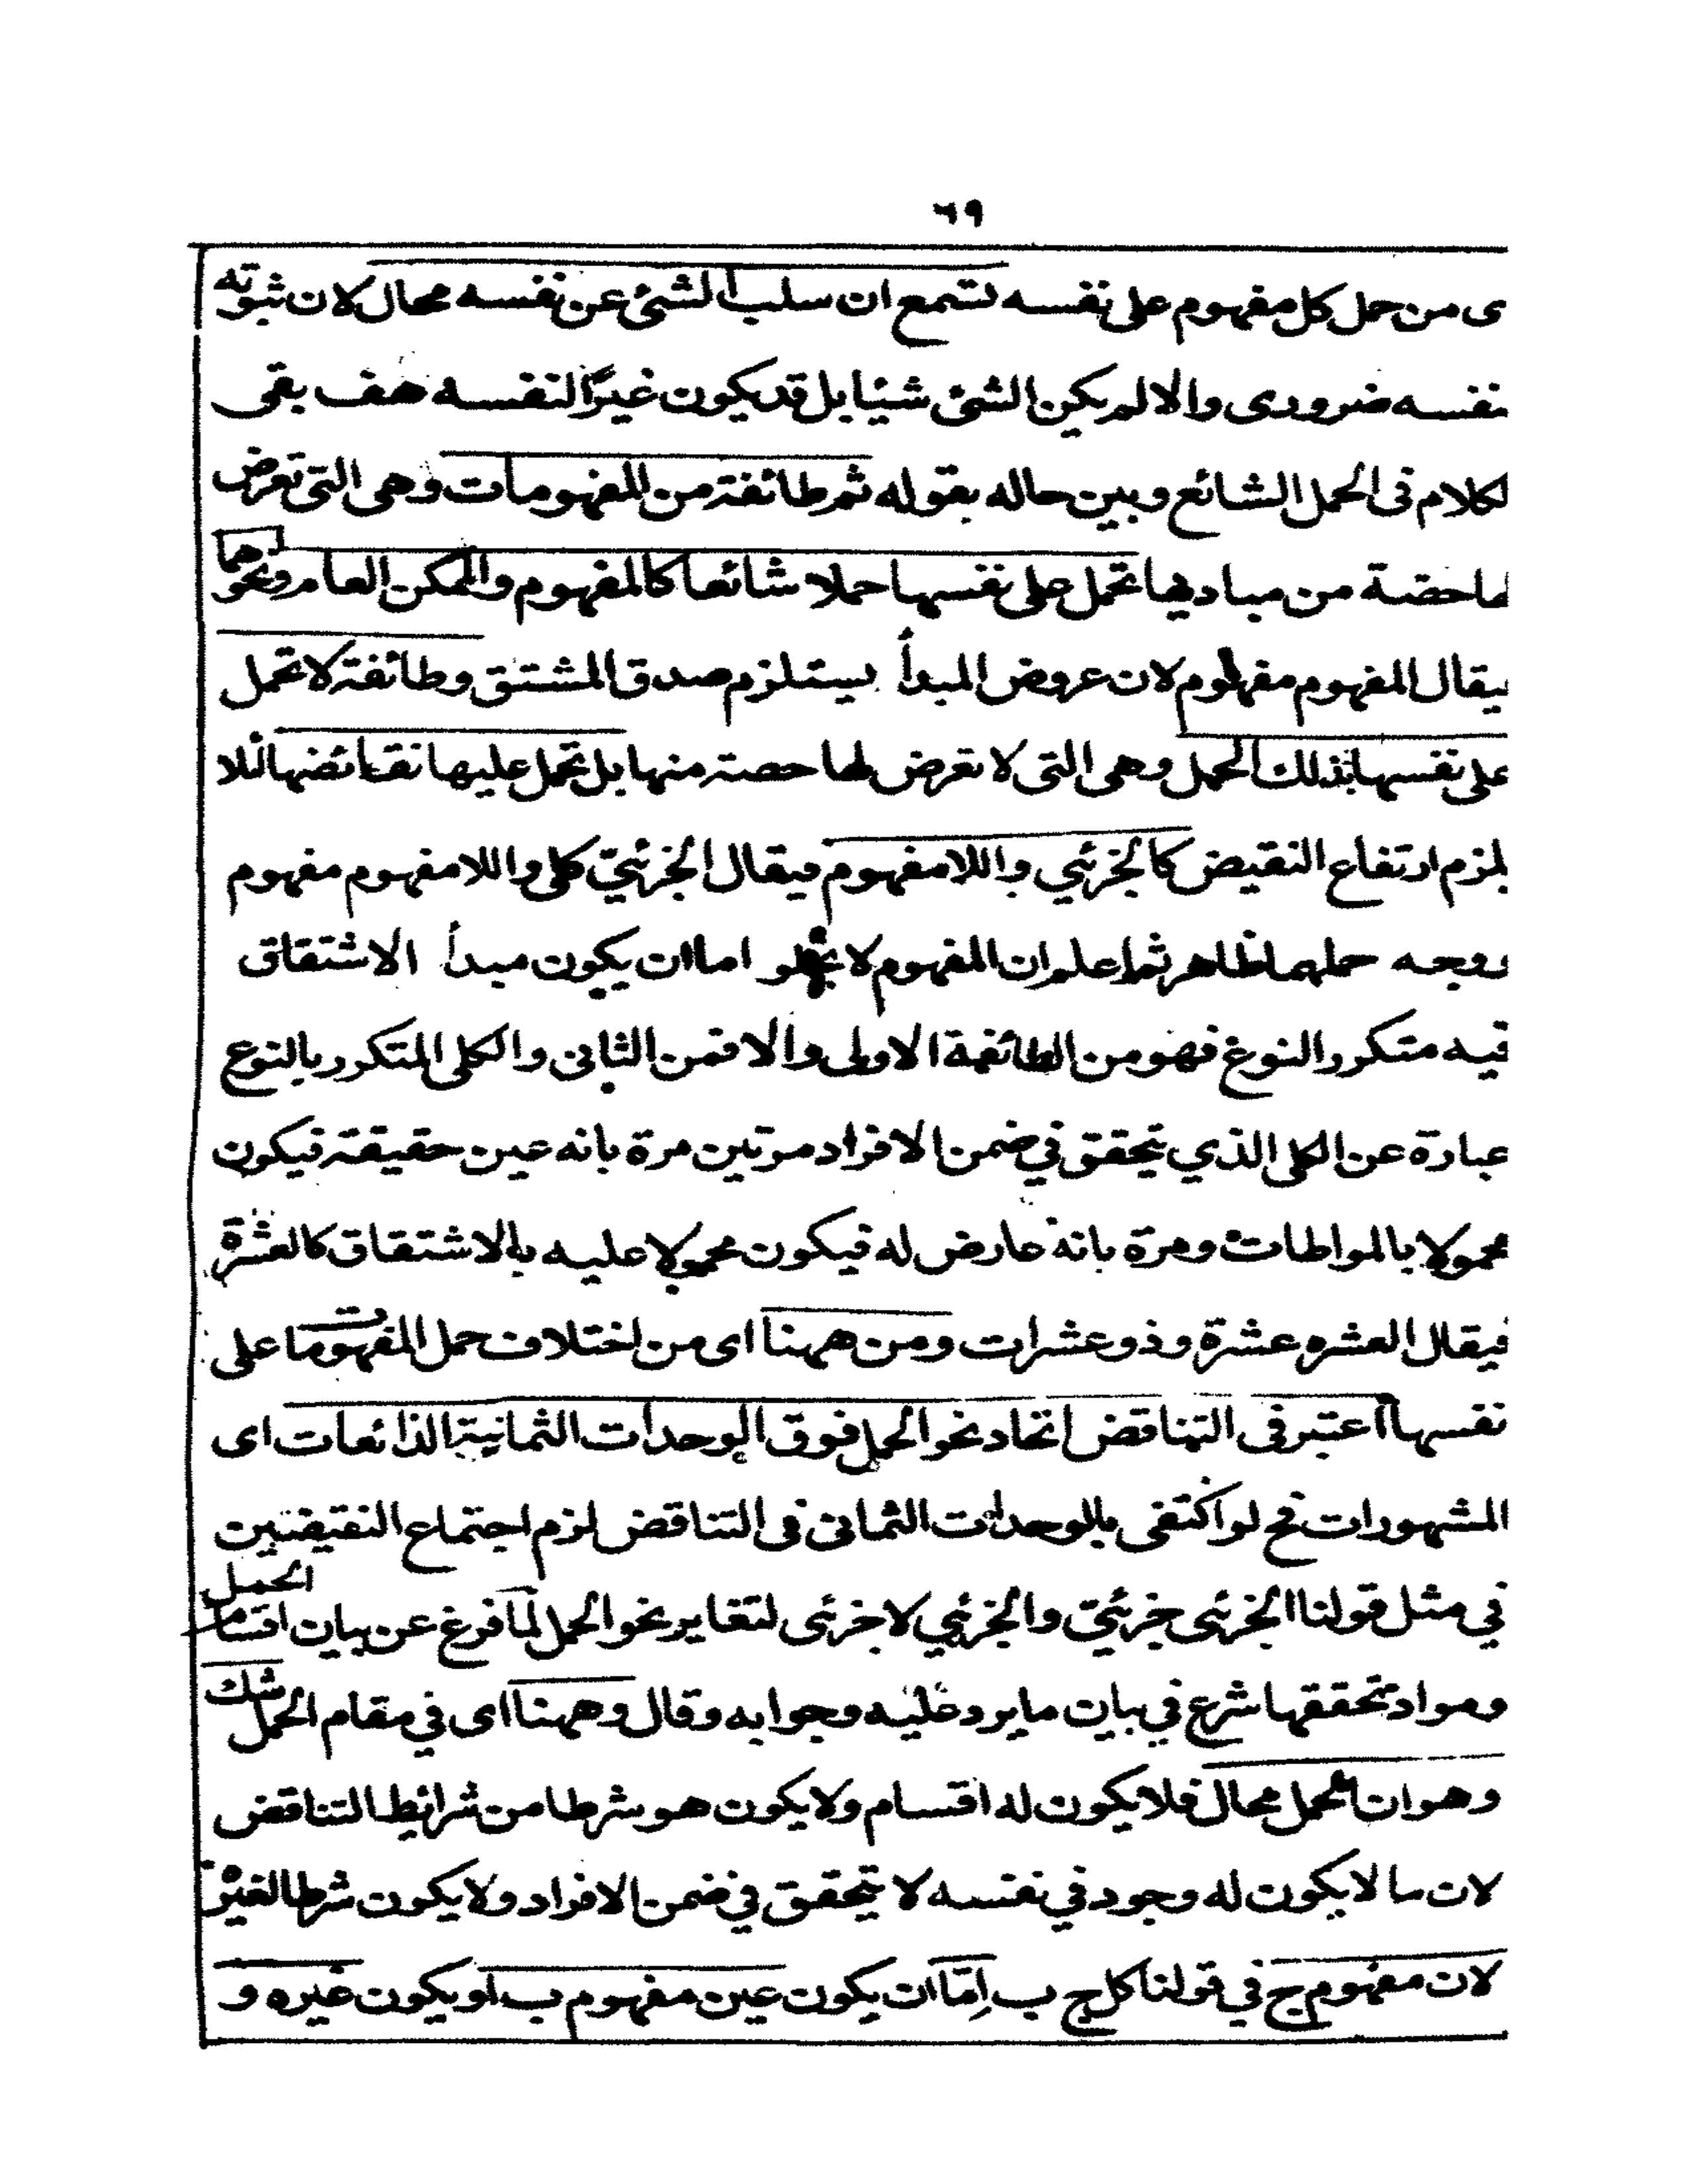 ٦٩
ى من حمل كل مفهوم على نفسه تسمع ان سلب الشئ عن نفسه محال لان ثبوته
نفسه ضرورى والا لم يكن الشئ شيئا بل قد يكون غيرًا لنفسه هف بقى
لكلام فى الحمل الشائع وبين حاله بقوله ثم طائفة من المفهومات وهى التى تعرض
لها حصة من مباديها تحمل على نفسها حملا شائعا كالمفهوم والممكن العام ونحوهما
يقال المفهوم مفهوم لان عروض المبدأ يستلزم صدق المشتق وطائفة لا تحمل
على نفسها بذلك الحمل وهى التى لا تعرض لها حصة منها بل تحمل عليها نقائضها لئلا
يلزم ارتفاع النقيض كالجزئي واللامفهوم فيقال الجزئيّ كلى واللامفهوم مفهوم
ووجه حملهما ظاهر ثم اعلم ان المفهوم لا يخلو اما ان يكون مبدأ الاشتقاق
فيه متكرر النوع فهو من الطائفة الاولى والا فمن الثانى والكلى المتكرر بالنوع
عبارة عن الكلى الذي يتحقق في ضمن الافراد مرتين مرة بانه عين حقيقته فيكون
محمولا بالمواطات ومرة بانه عارض له فيكون محمولا عليه بالاشتقاق كالعشرة
فيقال العشره عشرة وذو عشرات ومن ههنا اى من اختلاف حمل المفهومات على
نفسها اعتبر فى التناقض اتحاد نحو الحمل فوق الوحدات الثمانية الذائعات اى
المشهورات فح لو اكتفى بالوحدات الثمانى فى التناقض لزم اجتماع النقيضين
في مثل قولنا الجزئى جزئيّ والجزئي لا جزئى لتغاير نحو الحمل لما فرغ عن بيان اقسام الحمل
ومواد تحققها شرع في بيان ما يرد عليه وجوابه وقال وههنا اى في مقام الحمل شك
وهو ان الحمل محال فلا يكون له اقسام ولا يكون هو شرطا من شرائط التناقض
لان ما لا يكون له وجود في نفسه لا يتحقق في ضمن الافراد ولا يكون شرطا لغيره
لان مفهوم ج في قولنا كل ج ب اِمّا ان يكون عين مفهوم ب او يكون غيره و